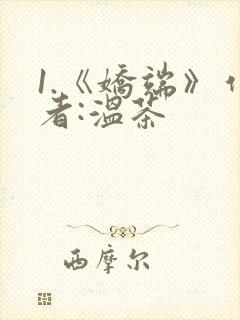 1.《娇端》作
者:温茶
西摩尔